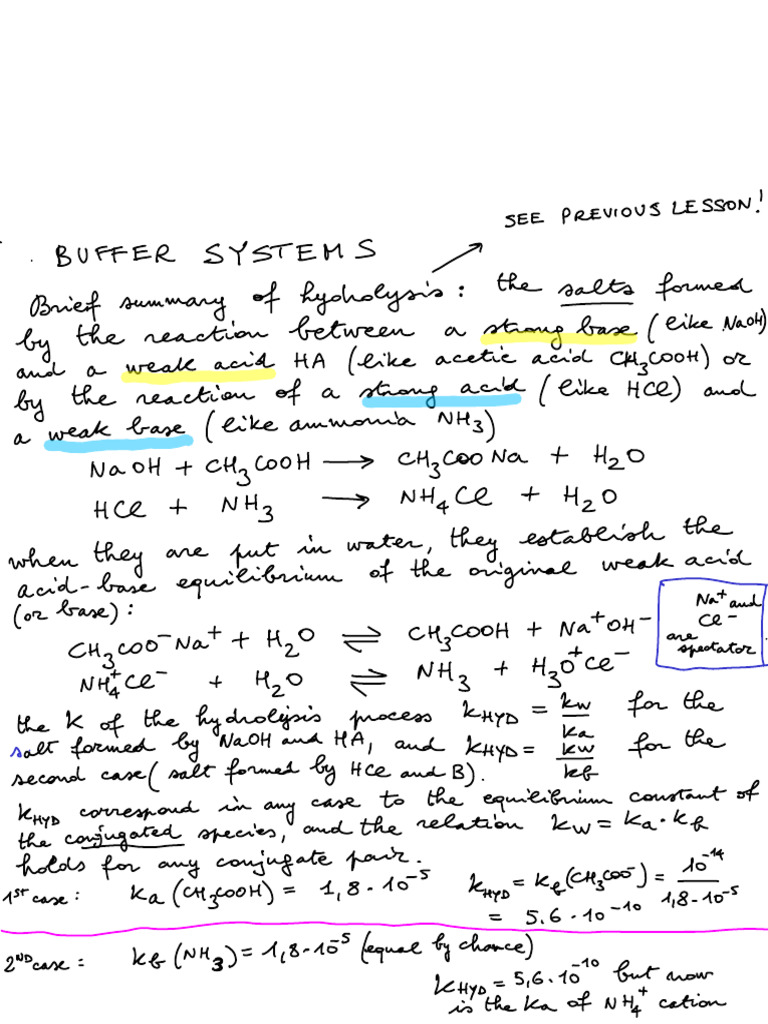 SEE PREVIOUS LESSON!
BUFFER SYSTEMS
Brief summary of hydrolysis: the salts formed
by the reaction between a strong base (like NaOH)
and a weak acid HA (like acetic acid CH₃COOH) or
by the reaction of a strong acid (like HCl) and
a weak base (like ammonia NH₃)
NaOH + CH₃COOH → CH₃COONa + H₂O
HCl + NH₃ → NH₄Cl + H₂O
when they are put in water, they establish the
acid-base equilibrium of the original weak acid
(or base):
Na⁺ and
Cl⁻
are
spectator
CH₃COO⁻Na⁺ + H₂O ⇌ CH₃COOH + Na⁺OH⁻
NH₄⁺Cl⁻ + H₂O ⇌ NH₃ + H₃O⁺Cl⁻
the K of the hydrolysis process K_HYD = Kw/Ka for the
salt formed by NaOH and HA, and K_HYD = Kw/Kb for the
second case (salt formed by HCl and B).
K_HYD correspond in any case to the equilibrium constant of
the conjugated species, and the relation Kw = Ka · Kb
holds for any conjugate pair.
1st case: Ka (CH₃COOH) = 1,8 · 10⁻⁵ K_HYD = Kb (CH₃COO⁻) = 10⁻¹⁴/1,8 · 10⁻⁵
= 5.6 · 10⁻¹⁰
2ND case: Kb (NH₃) = 1,8 · 10⁻⁵ (equal by chance)
K_HYD = 5,6 · 10⁻¹⁰ but now
is the Ka of NH₄⁺ cation